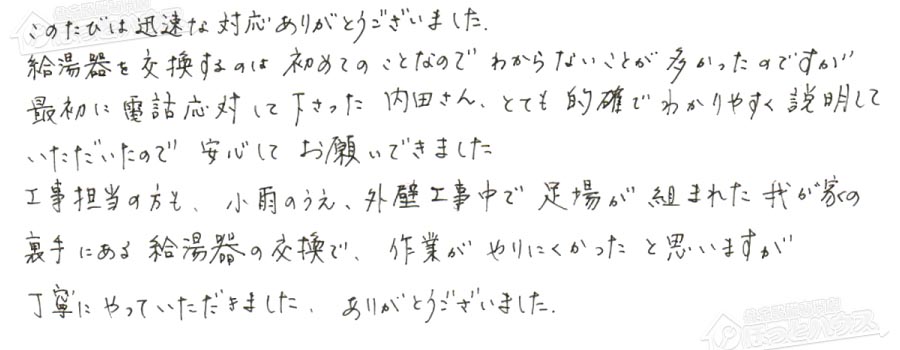 このたびは迅速な対応ありがとうございました.
給湯器を交換するのは初めてのことなのでわからないことが多かったのですが
最初に電話応対して下さった内田さん、とても的確でわかりやすく説明して
いただいたので安心してお願いできました
工事担当の方も、小雨のうえ、外壁工事中で足場が組まれた我が家の
裏手にある給湯器の交換で、作業がやりにくかったと思いますが
丁寧にやっていただきました、ありがとうございました.
ほっとハウス